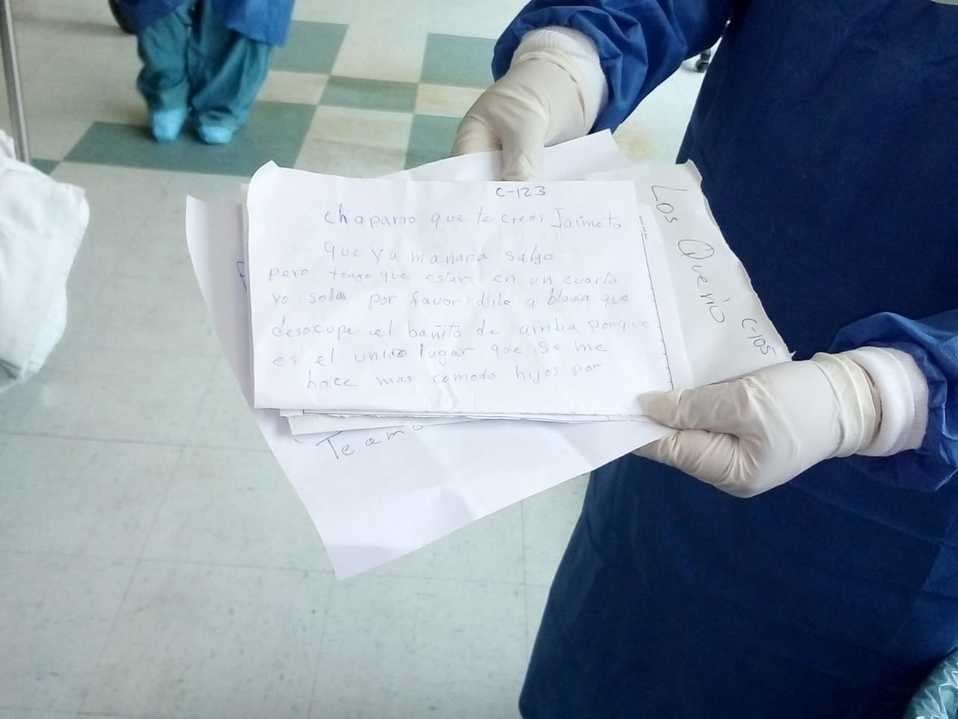 C-123
chaparro que te crees Jaimeto
que ya mañana salgo
pero tengo que estar en un cuarto
yo sola por favor dile a blanca que
desocupe el bañito de arriba porque
es el unico lugar que se me
hace mas comodo hijos por
Te amo
Los Querio
C-105